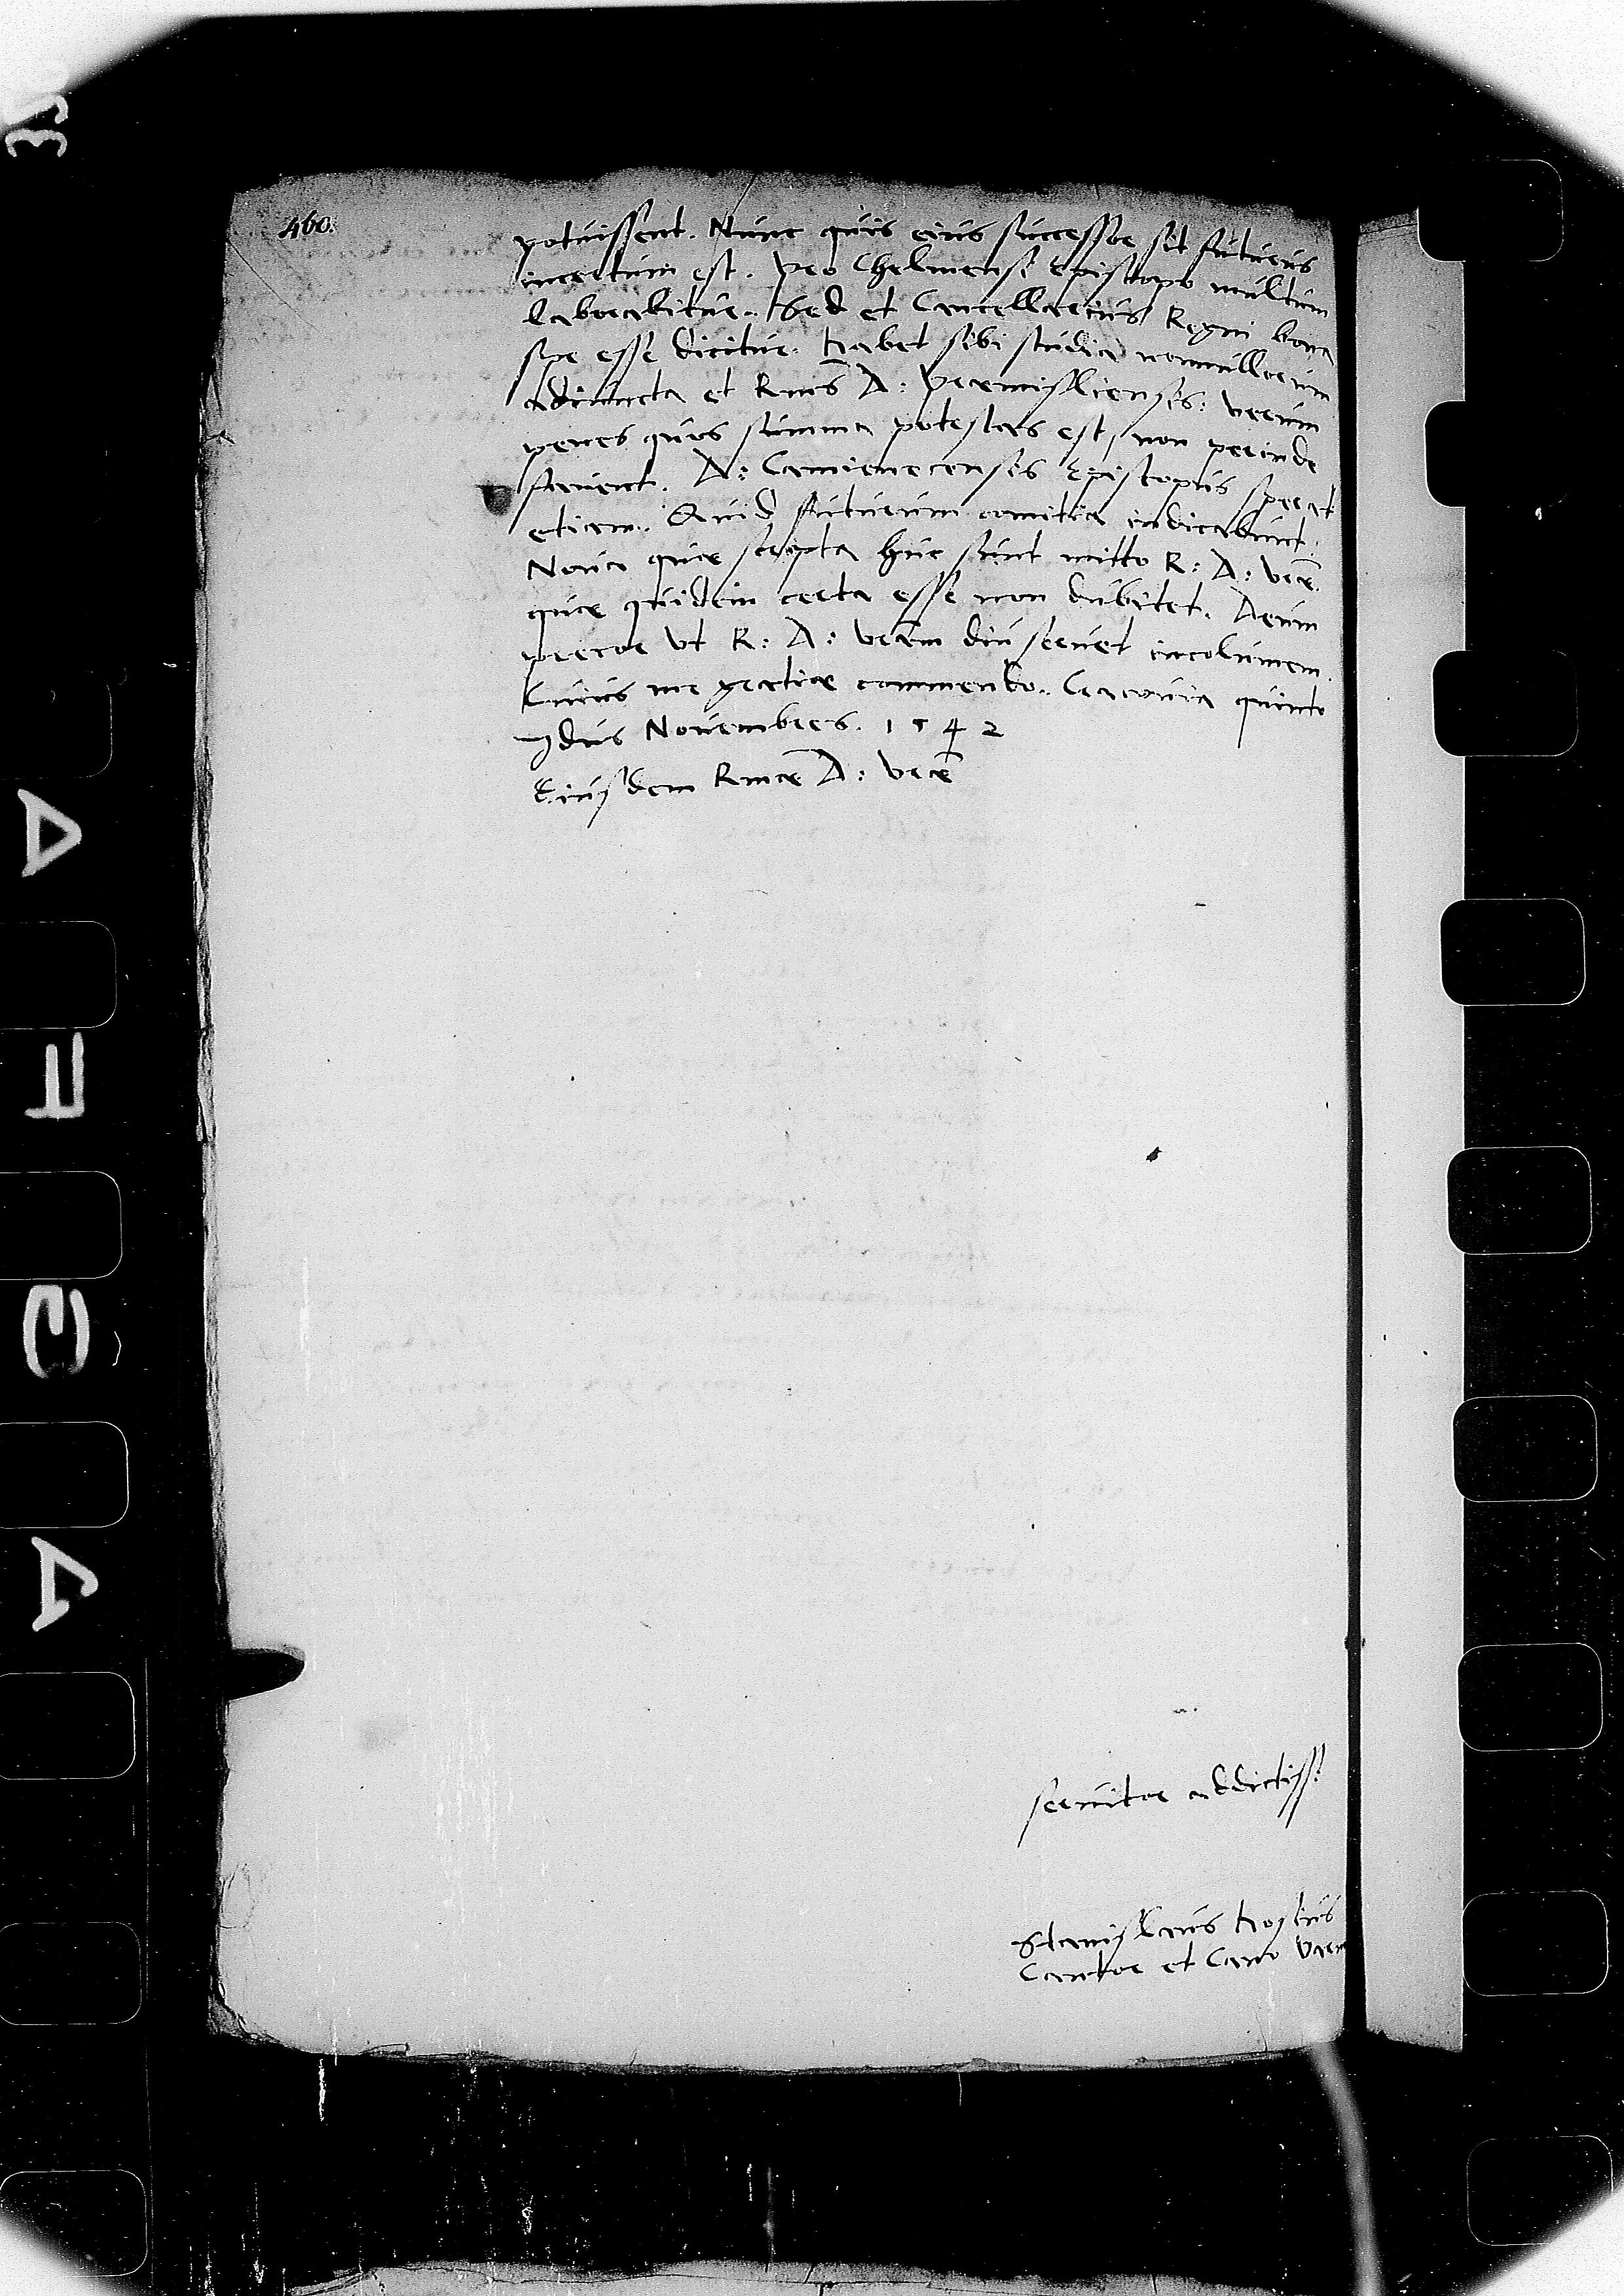 460.
potuissent. Nunc quis eius successor sit futurus
incertum est. Pro Chelmensi Episcopo multum
laborabitur. Sed et Cancellarius Regni bona
spe esse dicitur. Habet sibi studia nonnullorum
adiuncta et Rmus D: Premisliensis: verum
penes quos summa potestas est, non perinde
favent. D: Camienecensis Episcopus sperat
etiam. Quid futurum comitia indicabunt.
Nova quae scripta huc sunt mitto R: D: Vrae.
quae quidem certa esse non dubitet. Deum
precor ut R: D: Vram diu servet incolumem.
Cuius me gratiae commendo. Cracovia quinto
Idus Novembres. 1542
Eiusdem Rmae D: Vrae
servitor addictiss:
Stanislaus Hosius
Cantor et Cano Varm